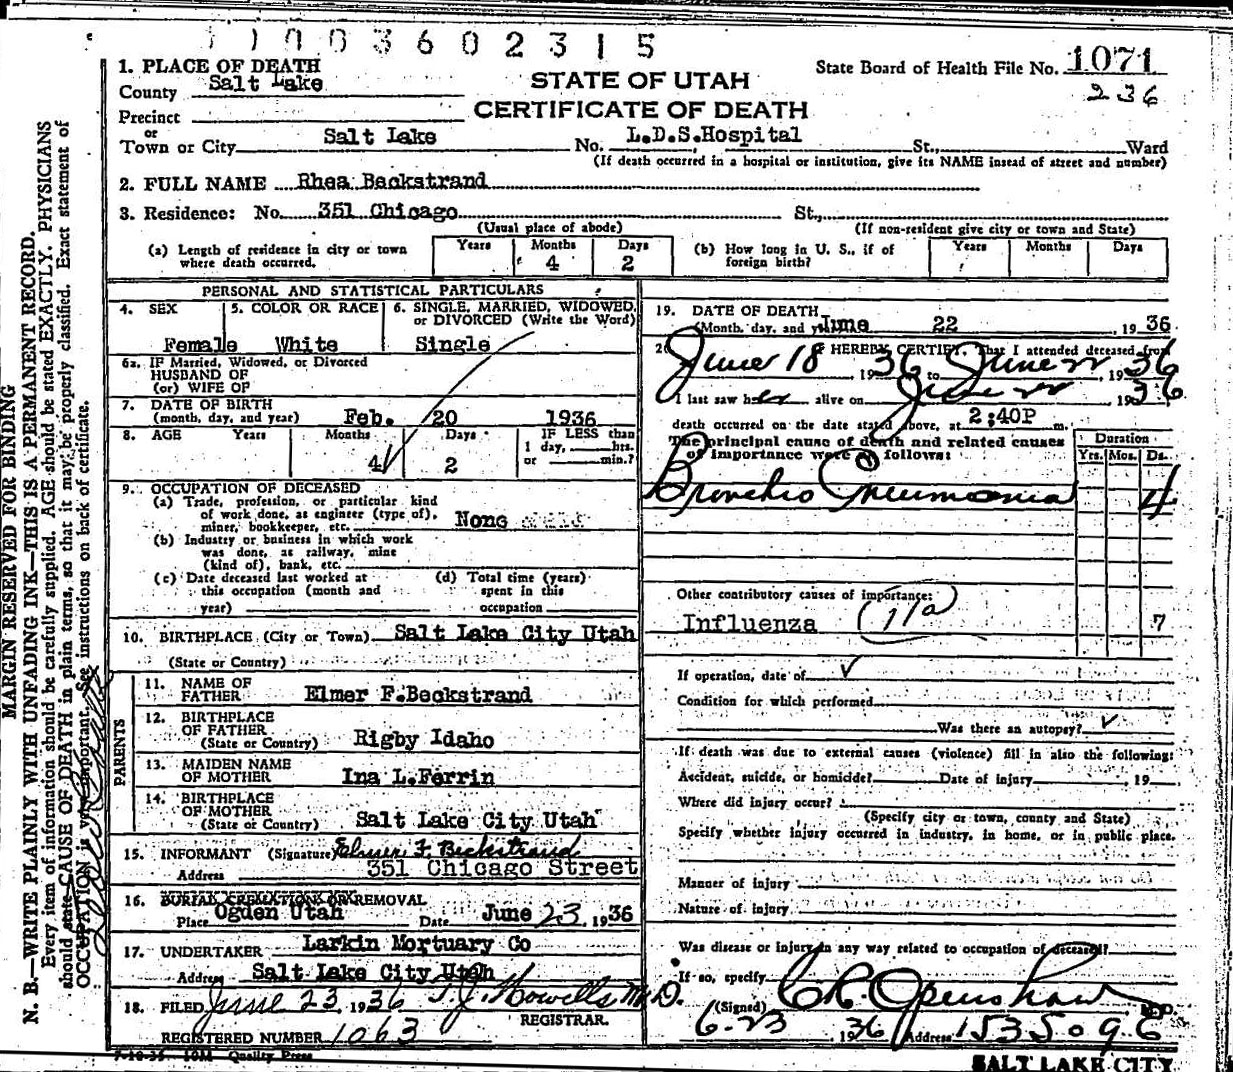 1003602315
1. PLACE OF DEATH
County Salt Lake
STATE OF UTAH
CERTIFICATE OF DEATH
State Board of Health File No. 1071
236
Precinct
or
Town or City Salt Lake No. L.D.S.Hospital St., Ward
(If death occurred in a hospital or institution, give its NAME instead of street and number)
2. FULL NAME Rhea Beckstrand
3. Residence: No. 351 Chicago St.,
(Usual place of abode) (If non-resident give city or town and State)
(a) Length of residence in city or town where death occurred. Years Months 4 Days 2
(b) How long in U. S., if of foreign birth? Years Months Days
PERSONAL AND STATISTICAL PARTICULARS
4. SEX Female
5. COLOR OR RACE White
6. SINGLE, MARRIED, WIDOWED, or DIVORCED (Write the Word) Single
6a. IF Married, Widowed, or Divorced
HUSBAND OF
(or) WIFE OF
7. DATE OF BIRTH
(month, day, and year) Feb. 20 1936
8. AGE Years Months 4 Days 2
IF LESS than
1 day, hrs.
or min.?
9. OCCUPATION OF DECEASED
(a) Trade, profession, or particular kind
of work done, as engineer (type of),
miner, bookkeeper, etc. None
(b) Industry or business in which work
was done, as railway, mine
(kind of), bank, etc.
(c) Date deceased last worked at
this occupation (month and
year)
(d) Total time (years)
spent in this
occupation
10. BIRTHPLACE (City or Town) Salt Lake City Utah
(State or Country)
PARENTS
11. NAME OF
FATHER Elmer F.Beckstrand
12. BIRTHPLACE
OF FATHER
(State or Country) Rigby Idaho
13. MAIDEN NAME
OF MOTHER Ina L.Ferrin
14. BIRTHPLACE
OF MOTHER
(State or Country) Salt Lake City Utah
15. INFORMANT (Signature) Elmer F Beckstrand
Address 351 Chicago Street
16. BURIAL CREMATION OR REMOVAL
Place Ogden Utah Date June 23, 1936
17. UNDERTAKER Larkin Mortuary Co
Address Salt Lake City Utah
18. FILED June 23, 1936 T. J. Howells M.D.
REGISTRAR.
REGISTERED NUMBER 1063
7-10-35 10M Quality Press
19. DATE OF DEATH
(Month, day, and year) June 22, 1936
20. I HEREBY CERTIFY, That I attended deceased from
June 18, 1936 to June 22, 1936
I last saw her alive on June 22, 1936
death occurred on the date stated above, at 2:40P m.
The principal cause of death and related causes
of importance were as follows:
Duration
Yrs. Mos. Ds.
Broncho Pneumonia 4
Other contributory causes of importance:
Influenza 11a 7
If operation, date of
Condition for which performed
Was there an autopsy?
If death was due to external causes (violence) fill in also the following:
Accident, suicide, or homicide? Date of injury , 19
Where did injury occur?
(Specify city or town, county and State)
Specify whether injury occurred in industry, in home, or in public place.
Manner of injury
Nature of injury
Was disease or injury in any way related to occupation of deceased?
If so, specify
(Signed) C R Openshaw M.D.
6-23 1936 Address 1535 09 E
SALT LAKE CITY
MARGIN RESERVED FOR BINDING
N. B.—WRITE PLAINLY WITH UNFADING INK—THIS IS A PERMANENT RECORD.
Every item of information should be carefully supplied. AGE should be stated EXACTLY. PHYSICIANS
should state CAUSE OF DEATH in plain terms, so that it may be properly classified. Exact statement of
OCCUPATION is very important. See instructions on back of certificate.